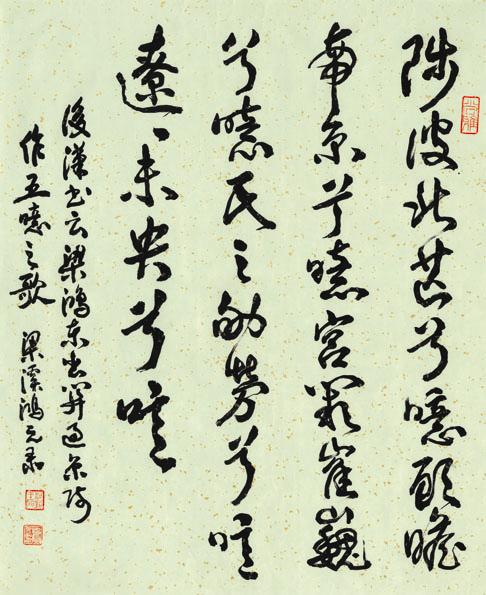 陟彼北芒兮噫顧瞻
帝京兮噫宮闕崔巍
兮噫民之劬勞兮噫
遼々未央兮噫
後漢书云梁鴻东出關過京師
作五噫之歌 梁溪鴻元录